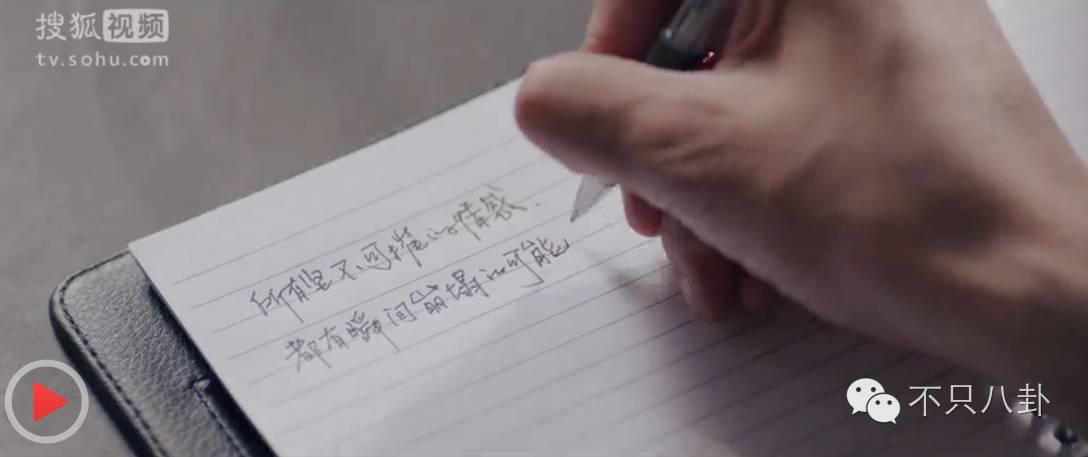 搜狐视频
tv.sohu.com
所有坚不可摧的情感.
都有瞬间崩塌的可能
不只八卦